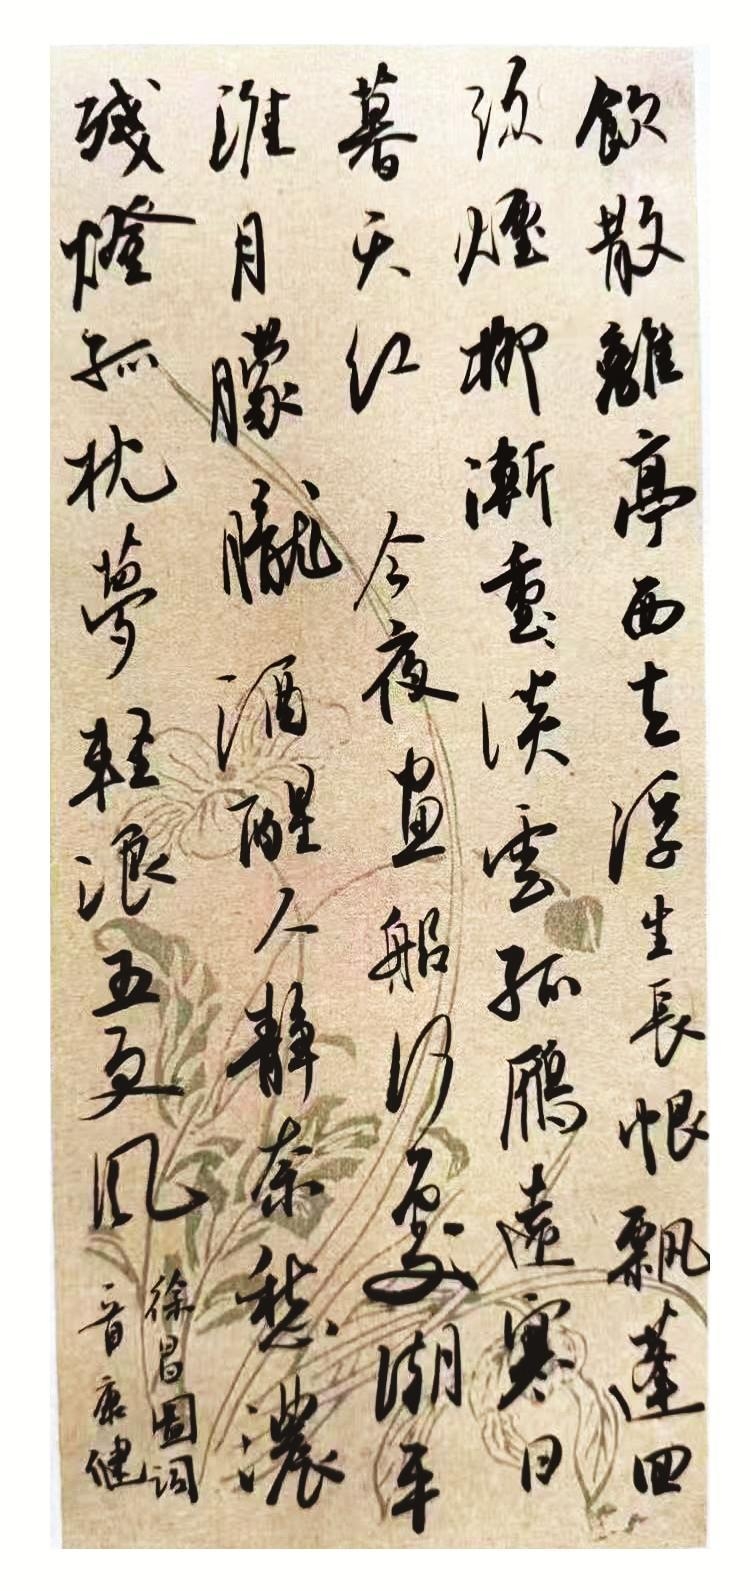 飲散離亭西去浮生長恨飄蓬回
頭煙柳漸重重淡雲孤鴈遠寒日
暮天紅 今夜画船何處潮平
淮月朦朧酒醒人靜奈愁濃
殘燈孤枕夢輕浪五更風
徐昌圖詞
音康健